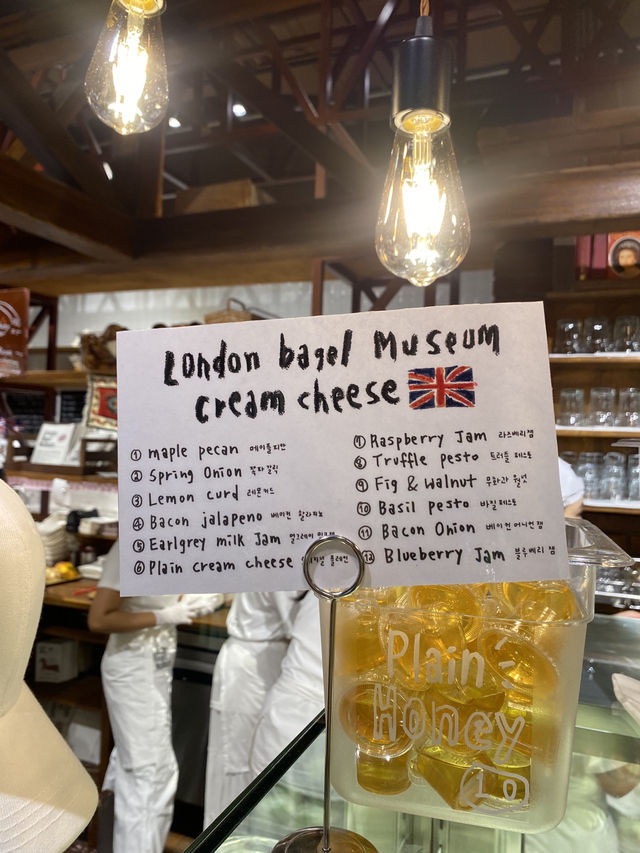 London bagel Museum
cream cheese
① maple pecan 메이플피칸
② Spring Onion 쪽파 플레인
③ Lemon curd 레몬커드
④ Bacon jalapeno 베이컨 할라피뇨
⑤ Earlgrey milk Jam 얼그레이 밀크잼
⑥ Plain cream cheese 플레인
⑦ Raspberry Jam 라즈베리잼
⑧ Truffle pesto 트러플 페스토
⑨ Fig & walnut 무화과 월넛
⑩ Basil pesto 바질 페스토
⑪ Bacon Onion 베이컨 어니언잼
⑫ Blueberry Jam 블루베리 잼
Plain
Honey